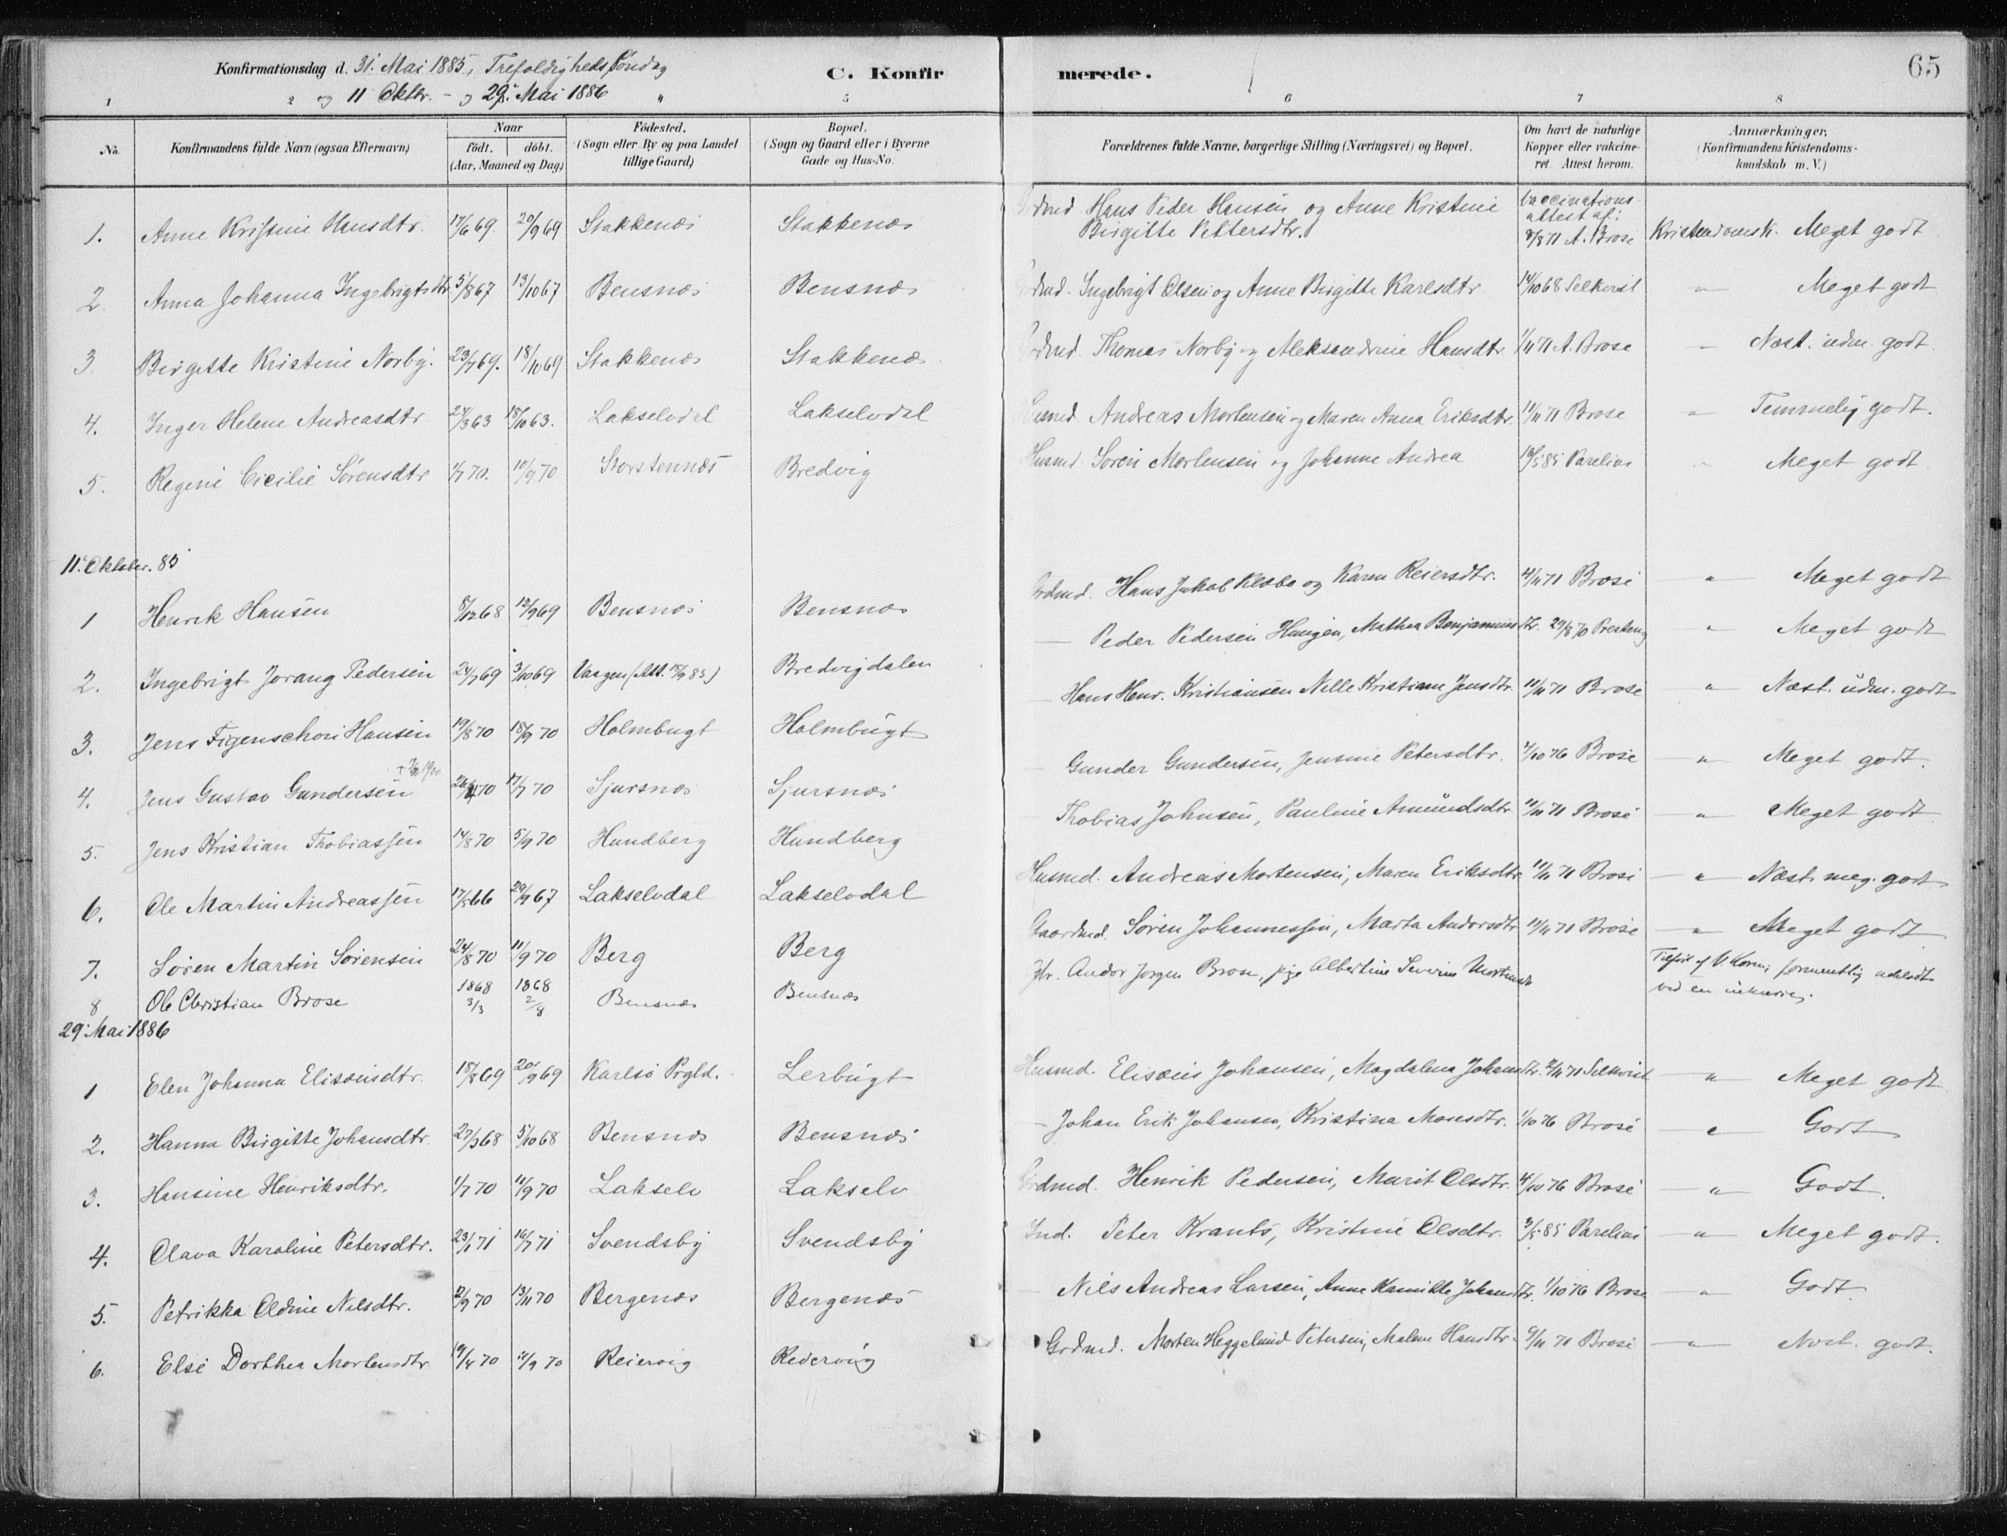 Konfirmationsdag d. 31. Mai 1885, Trefoldigheds Søndag
og 11 Oktbr. - og 29. Mai 1886
C. Konfirmerede.
65
1 2 5 6 7 8
No. Konfirmandens fulde Navn (ogsaa Efternavn) Naar født. døbt. (Aar, Maaned og Dag) Fødested. (Sogn eller By og paa Landet tillige Gaard) Bopæl. (Sogn og Gaard eller i Byerne Gade og Hus-No. Forældrenes fulde Navne, borgerlige Stilling (Næringsvei) og Bopæl. Om havt de naturlige Kopper eller vakcineret. Attest herom. Anmærkninger. (Konfirmandens Kristendomskundskab m. V.)
1. Anne Kristine Hansdtr. 17/6 69. 20/9 69 Stakkenæs Stakkenæs Grdmd. Hans Peder Hansen og Anne Kristine Birgitte Pettersdtr. Vaccinations attest af: 8/8 71 A. Brose Kristendomsk. Meget godt
2. Anna Johanna Ingebrigtsdtr 5/8 67 13/10 67 Bensnæs Bensnæs Grdmd. Ingebrigt Olsen og Anne Birgitte Karlsdtr 14/10 68 Selkvist " Meget godt
3. Birgitte Kristine Norby. 23/7 69. 18/10 69 Stakkenæs Stakkenæs Grdmd. Thomas Norby og Aleksandrine Hansdtr 1/11 71 A. Brose - Næst. udm. godt
4. Inger Helene Andreasdtr. 27/3 63 18/10 63. Lakselvdal Lakselvdal Husmd. Andreas Mortensen og Maren Anna Eriksdtr. 11/11 71 Brose " Temmelig godt.
5. Regine Cicilie Sørensdtr 1/7 70. 10/9 70 Storstennæs Bredvig Husmd. Soren Mortensen og Johanne Andrea 10/5 85 Parelius " Meget godt
11. Oktober. 85
1 Henrik Hansen 8/12 68 12/9 69 Bensnæs Bensnæs Grdmd. Hans Jakob Klæbo og Karen Reiersdtr. 4/11 71 Brose " Meget godt
2. Ingebrigt Jorang Pedersen 24/7 69 3/10 69 Vaagen (Att. 85) Bredvigdalen - Peder Pedersen Haugen, Mathea Benjaminsdtr. 29/8 70 " Meget godt
3. Jens Figenschou Hansen 19/8 70 18/9 70 Holmbugt Holmbugt - Hans Henr. Kristiansen Nille Kristiane Jensdtr. 11/11 71 Brose " Næst. udm. godt
4. Jens Gustav Gundersen 26/4 70 17/7 70 Sjursnæs Sjursnæs - Gunder Gundersen, Jensine Petersdtr. 4/10 76 Brose " Meget godt.
5. Jens Kristian Thobiassen 14/8 70 5/9 70 Hundberg Hundberg - Thobias Johnsen, Pauline Amundsdtr. 11/11 71 Brose " Meget godt
6. Ole Martin Andreassen 17/5 66 29/9 67 Lakselvdal Lakselvdal Husmd. Andreas Mortensen, Maren Eriksdtr 11/11 71 Brose " Næst. meg. godt
7. Søren Martin Sørensen 24/8 70 11/9 70 Berg Berg Gaardmd. Søren Johannessen, Marta Andersdtr 11/11 71 Brose " Meget godt
8 Ole Christian Brose 1868 3/3 1868 2/8 Bensnæs Bensnæs Andor Jørgen Brose, pige Albertine Severine Mortensdtr Tilført af V. Karm, formentlig udeladt ved en inkurie.
29. Mai 1886
1 Elen Johanna Elisæusdtr. 15/8 69 20/9 69 Karlsø Prgld. Lerbugt Husmd. Elisæus Johansen, Magdalena Johansdtr. 71 Selkvist " Meget godt
2. Hanna Birgitte Johansdtr. 27/7 68 5/10 68 Bensnæs Bensnæs - Johan Erik Johansen, Kristina Monsdtr. 1/10 76 Brose " Godt
3. Hansine Henriksdtr. 1/7 70 11/9 70 Lakselv Lakselv Grdmd. Henrik Pedersen, Marit Olsdtr. 4/10 76 Brose " Godt.
4. Olava Karoline Petersdtr. 23/1 71 16/7 71 Svendsby Svendsby Ind. Peter Krants, Kristine Olsdtr. 3/5 85 Parelius " Meget godt.
5. Petrikka Oldine Nilsdtr. 2/9 70 13/11 70 Bergenæs Bergenæs Nils Andreas Larsen, Anne Kamilla Johansdtr. 1/10 76 Brose " Godt
6. Else Dorthea Mortensdtr 19/4 70 /9 70 Reiervig Reiervig Grdmd. Morten Heggelund Petersen, Malene Hansdtr. 6/11 71 Brose " Næst. godt.